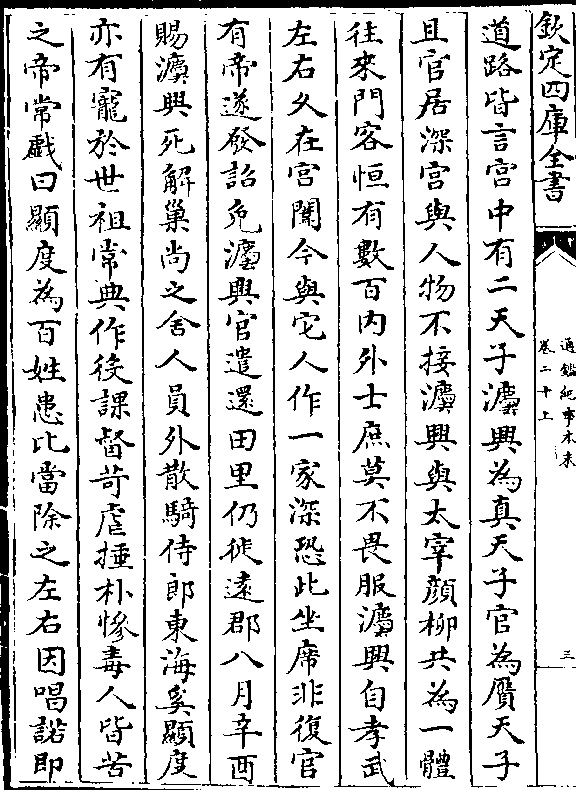 欽定四庫全書
通鑑紀事本末
卷二十上
三
道路皆言宫中有二天子灋興為真天子官為贋天子
且官居深宫與人物不接灋興與太宰顔柳共為一體
往來門客恒有數百内外士庶莫不畏服灋興自孝武
左右久在宫闈今與它人作一家深恐此坐席非復官
有帝遂發詔免灋興官遣還田里仍徙逺郡八月辛酉
賜灋興死解巢尚之舍人員外散騎侍郎東海奚顯度
亦有寵於世祖常典作役課督苛虐捶朴慘毒人皆苦
之帝常戲曰顯度為百姓患比當除之左右因唱諾即